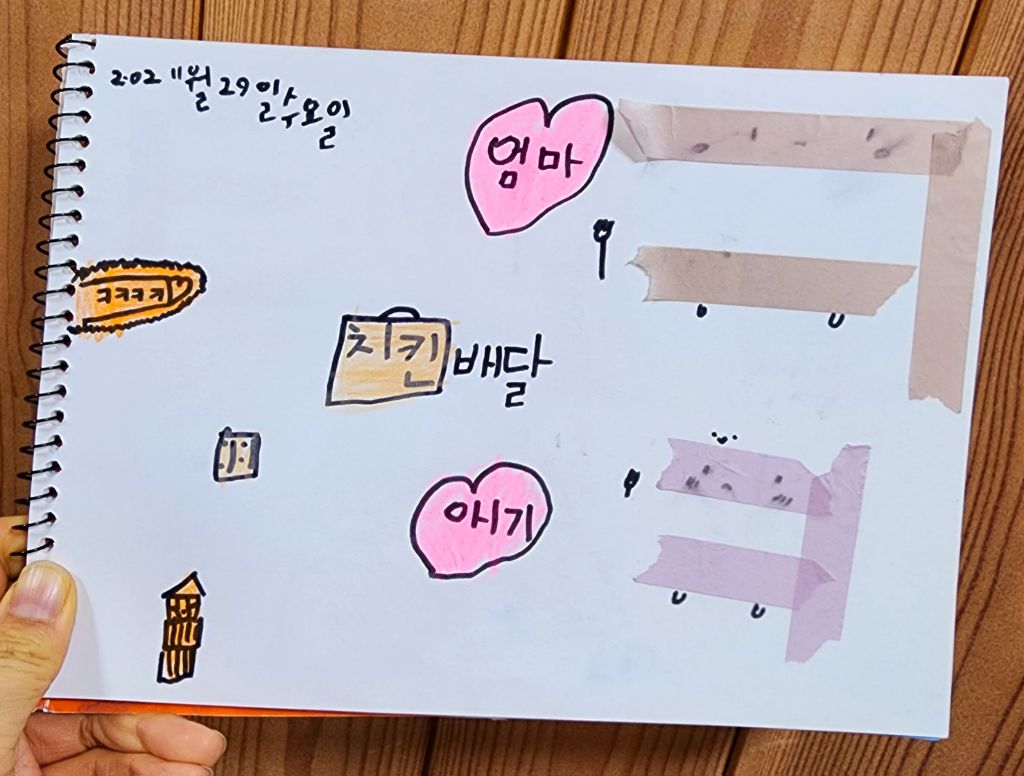 2.02 11월 29일 수요일
엄마
ㅋㅋㅋㅋ
치킨 배달
아기